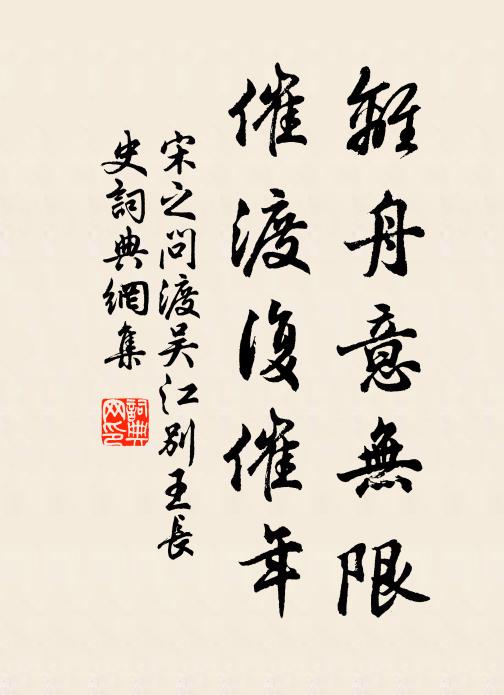 離舟意無限
催渡復催年
宋之問渡吳江別王長
史詞典網集
詞典
网印